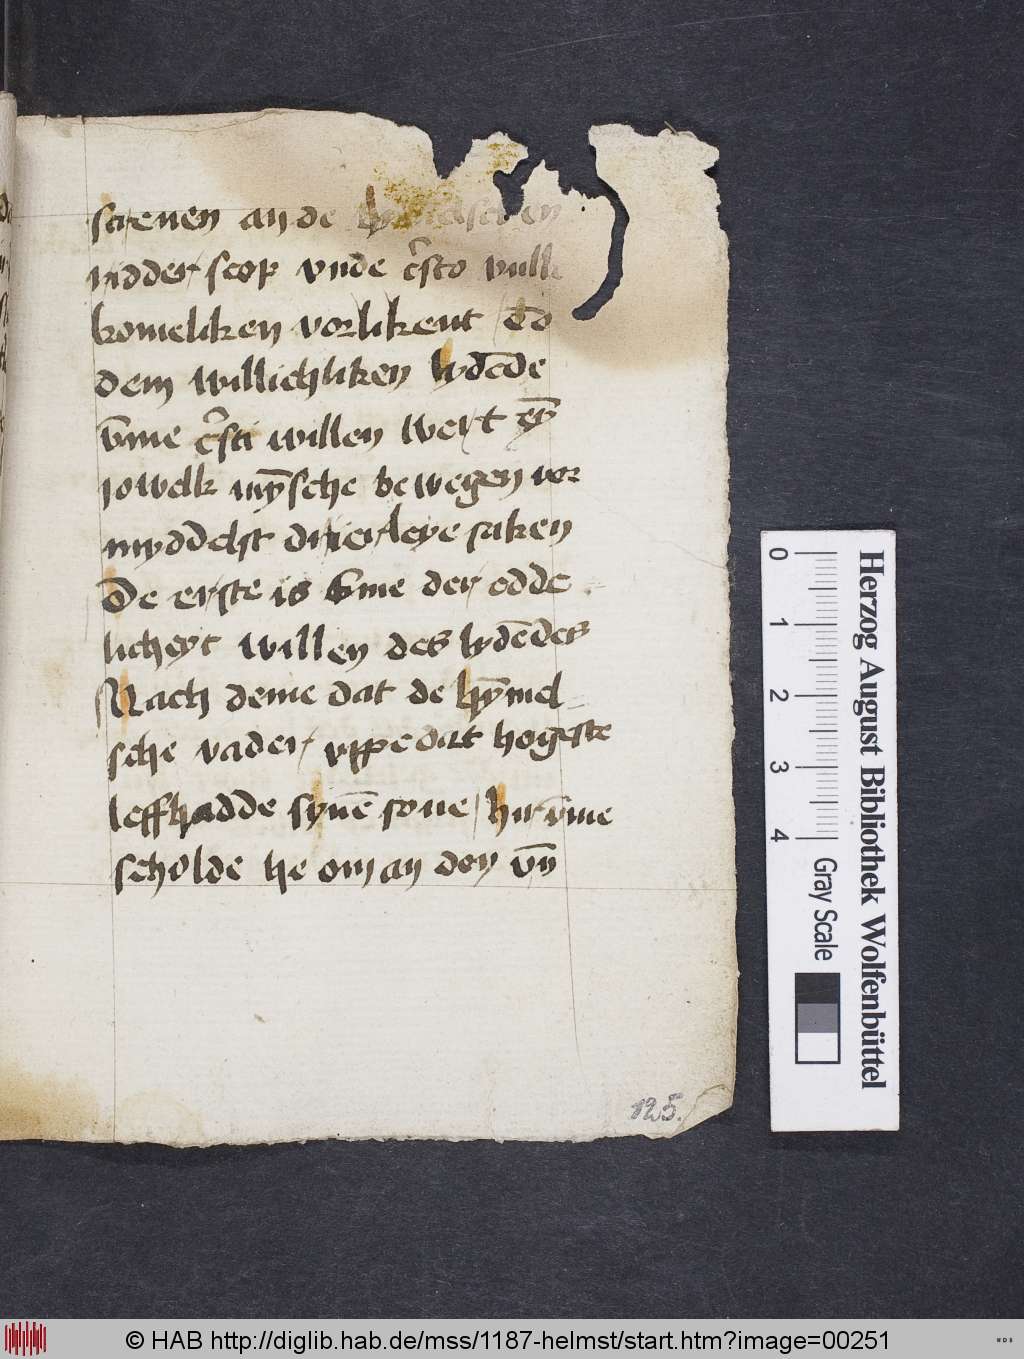 screuen an de
ridder scop vnde c̄sto vull
komeliken vorlikent To
dem willichliken lydēde
v̄me c̄sti willen wert eȳ
iowelk mȳsche bewegen vor
myddelst drierleye saken
De erste is v̄me der edde
licheyt willen des lydēdes
Nach deme dat de hȳmel
sche vader vppe dat hogeste
leff hadde synē sone / hir v̄me
scholde he om an don vn̄
125.
Herzog August Bibliothek Wolfenbüttel
0 1 2 3 4
Gray Scale
© HAB http://diglib.hab.de/mss/1187-helmst/start.htm?image=00251
WDB